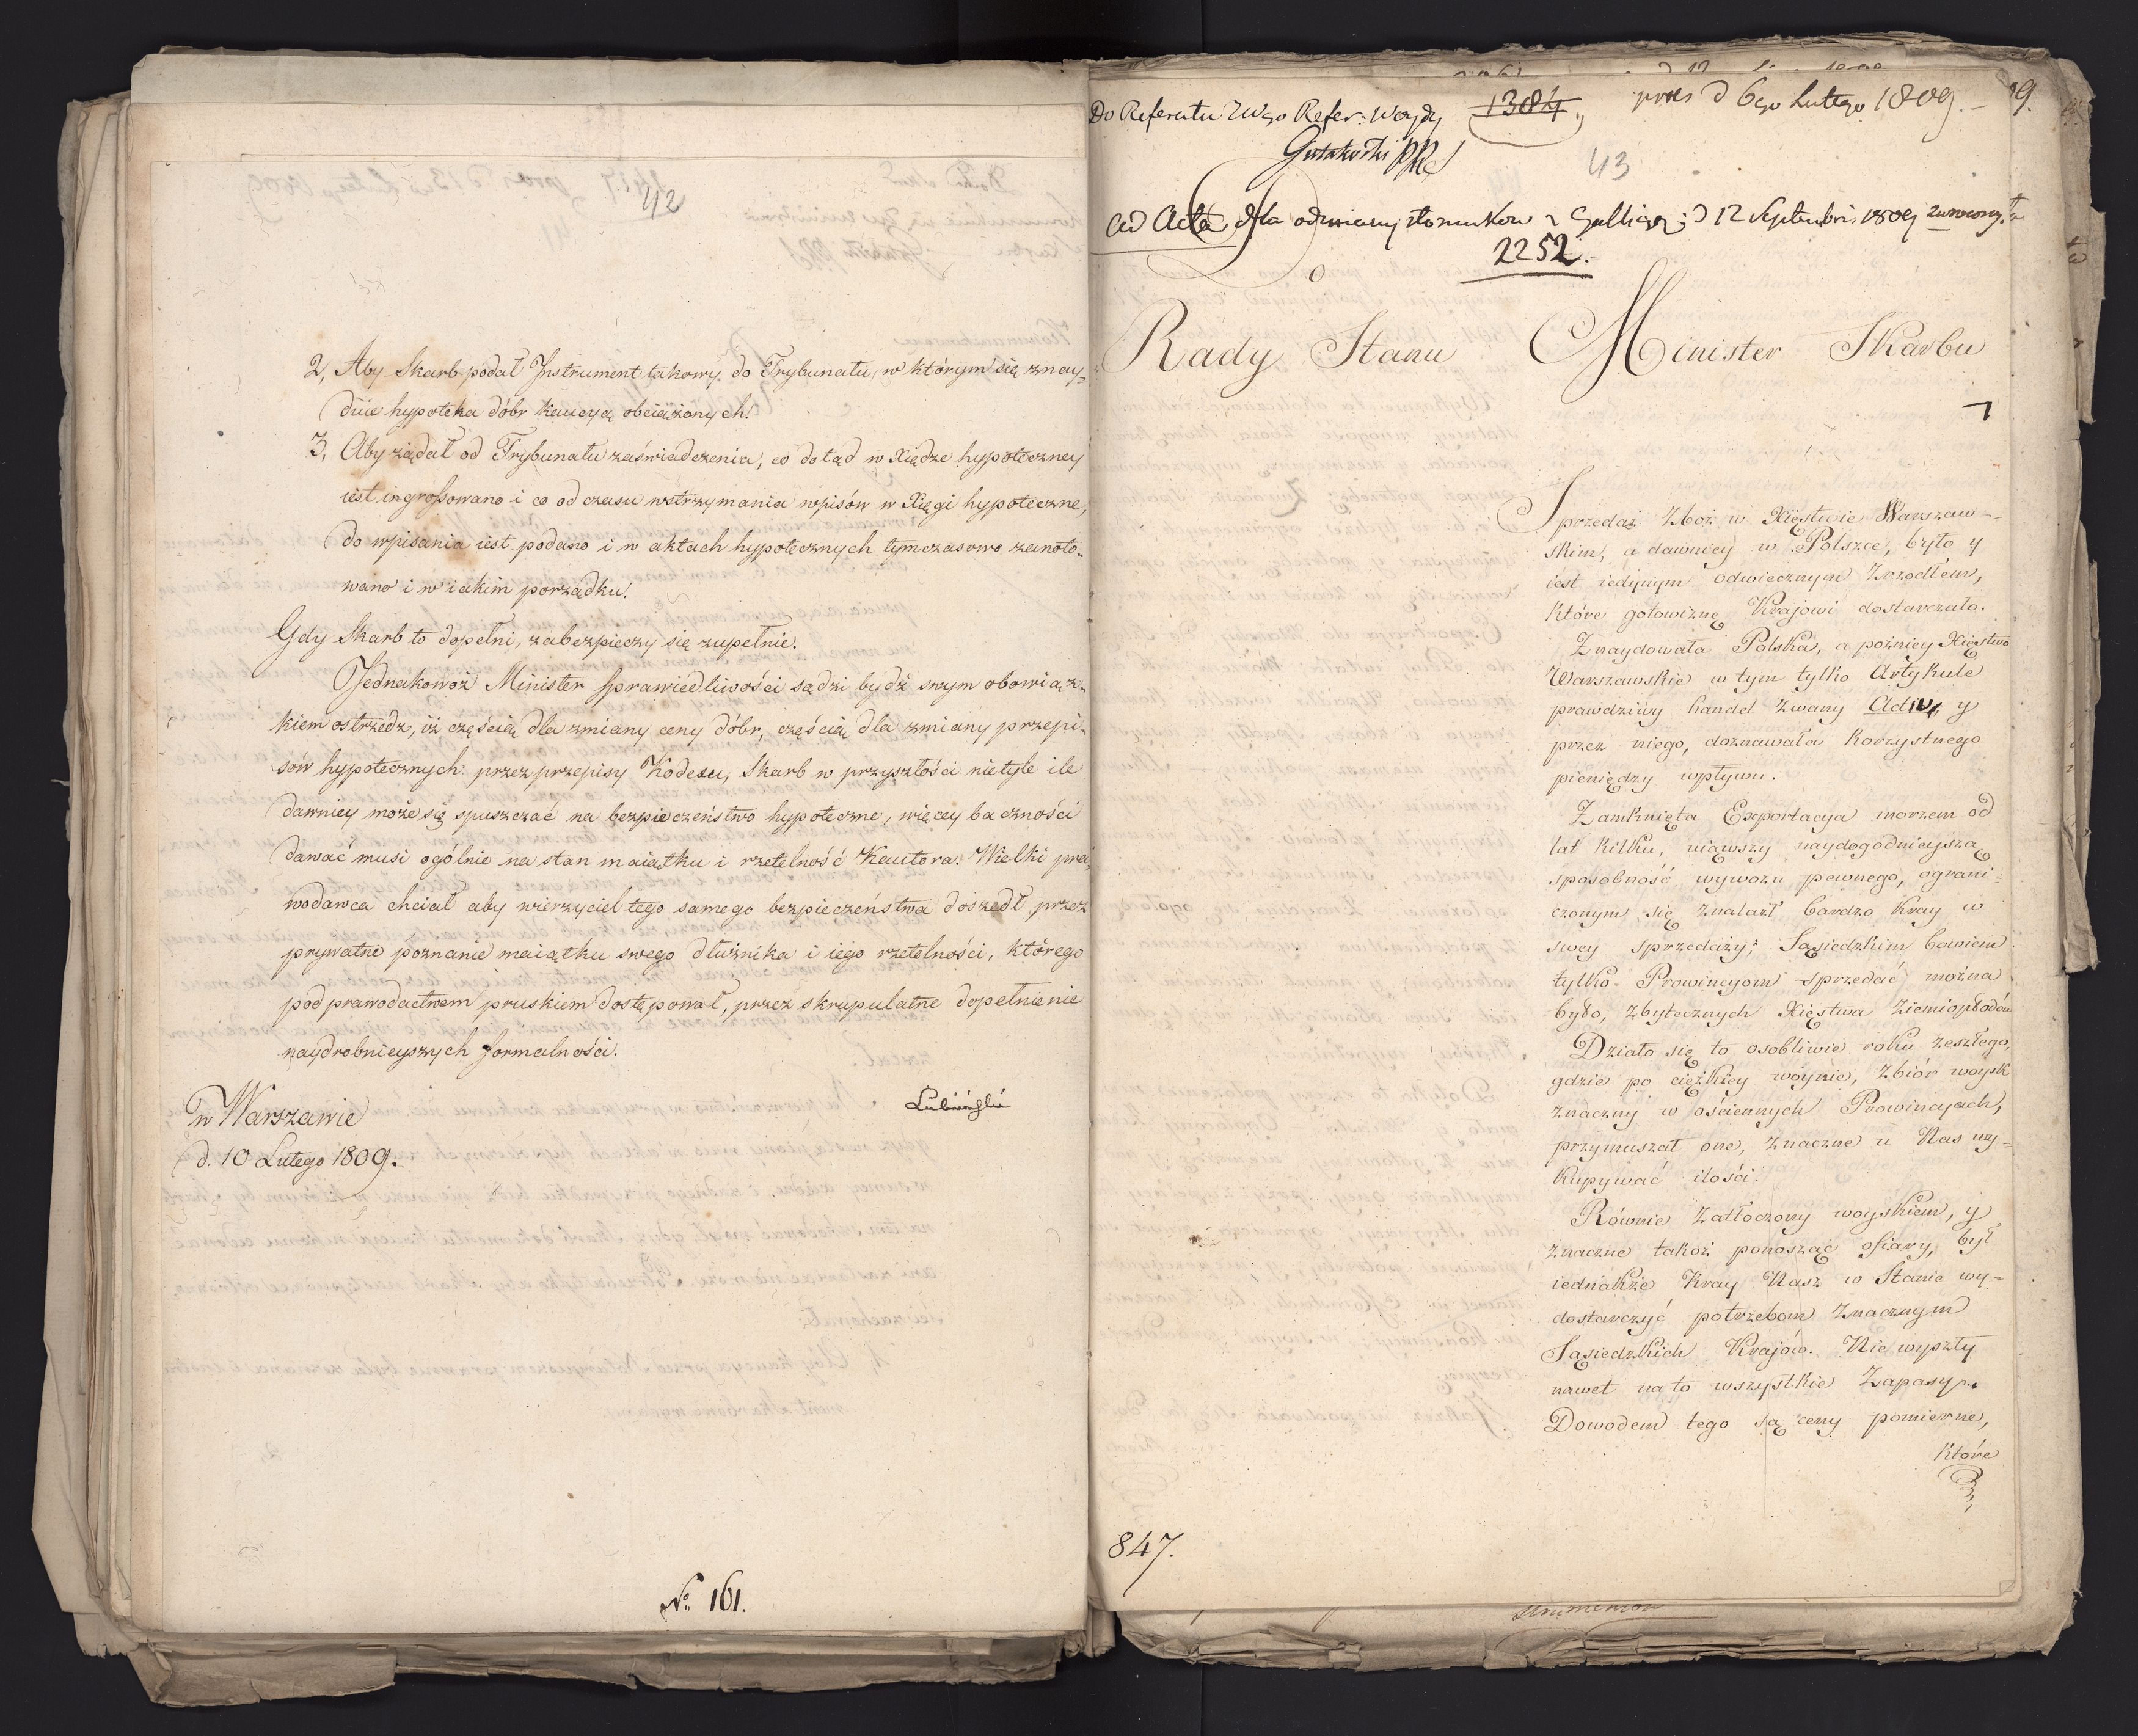 42
2, Aby Skarb podał Jnstrument takowy do Trybunału, w którym się znay-
duie hypoteka dóbr kaucyą obciążonych!
3, Aby żądał od Trybunału zaświadczenia, co dotąd w Xiędze hypoteczney
iest ingrossowano i co od czasu wstrzymania wpisów w Xięgi hypoteczne,
do wpisania iest podano i w aktach hypotecznych tymczasowo zanoto-
wano i w iakim porządku!
Gdy Skarb to dopełni, zabezpieczy się zupełnie.
Jednakowoż Minister Sprawiedliwości sądzi bydź swym obowiąz-
kiem ostrzedz, iż częścią dla zmiany ceny dóbr, częścią dla zmiany przepi-
sów hypotecznych przez przepisy Kodexu, Skarb w przyszłości nie tyle ile
dawniey może się spuszczać na bezpieczeństwo hypoteczne, więcey baczności
dawać musi ogólnie na stan maiątku i rzetelność Kautora. Wielki pra-
wodawca chciał aby wierzyciel tego samego bezpieczeństwa doszedł przez
prywatne poznanie maiątku swego dłużnika i iego rzetelności, którego
pod prawodactwem pruskiem dostępował, przez skrupulatne dopełnienie
naydrobnieyszych formalności.
w Warszawie
d. 10 Lutego 1809.
Lubieński
No 161.
Do Referatu JWgo Refer: Woydy
1384
praes d 6go Lutego 1809.
Gutakowski PRS
43
Ad Acta dla odmiany stosunków z Galliją; d 12 Septembris 1809
2252.
Do
Rady Stanu
Minister Skarbu
Sprzedaż Zboż w Xięstwie Warszaw-
skim, a dawniey w Polszcze, było y
iest iedynym odwiecznym Zrzodłem,
które gotowiznę Krajowi dostarczało.
Znaydowała Polska, a poźniey Xięstwo
Warszawskie w tym tylko Artykule
prawdziwy handel zwany Activ, y
przez niego, doznawała korzystnego
pieniędzy wpływu.
Zamknięta Exportacya morzem od
lat kilku, uiąwszy naydogodnieyszą
sposobność wywozu pewnego, ograni-
czonym się znalazł bardzo Kray w
swey sprzedaży; Sąsiedzkim bowiem
tylko Prowincyom sprzedać można
było, zbytecznych Xięstwa Ziemiopłodów
Działo się to osobliwie roku zeszłego,
gdzie po ciężkiey woynie, Zbiór woysk
znaczny w ościennych Prowincyach,
przymuszał one, znaczne u Nas wy-
kupywać ilości.
Równie zatłoczony woyskiem, y
znaczne takoż ponosząc ofiary, był
iednakże Kray Nasz w Stanie wy-
dostarczyć potrzebom znacznym
Sąsiedzkich Krajów. Nie wyszły
nawet na to wszystkie Zapasy.
Dowodem tego są ceny pomierne,
które
847.